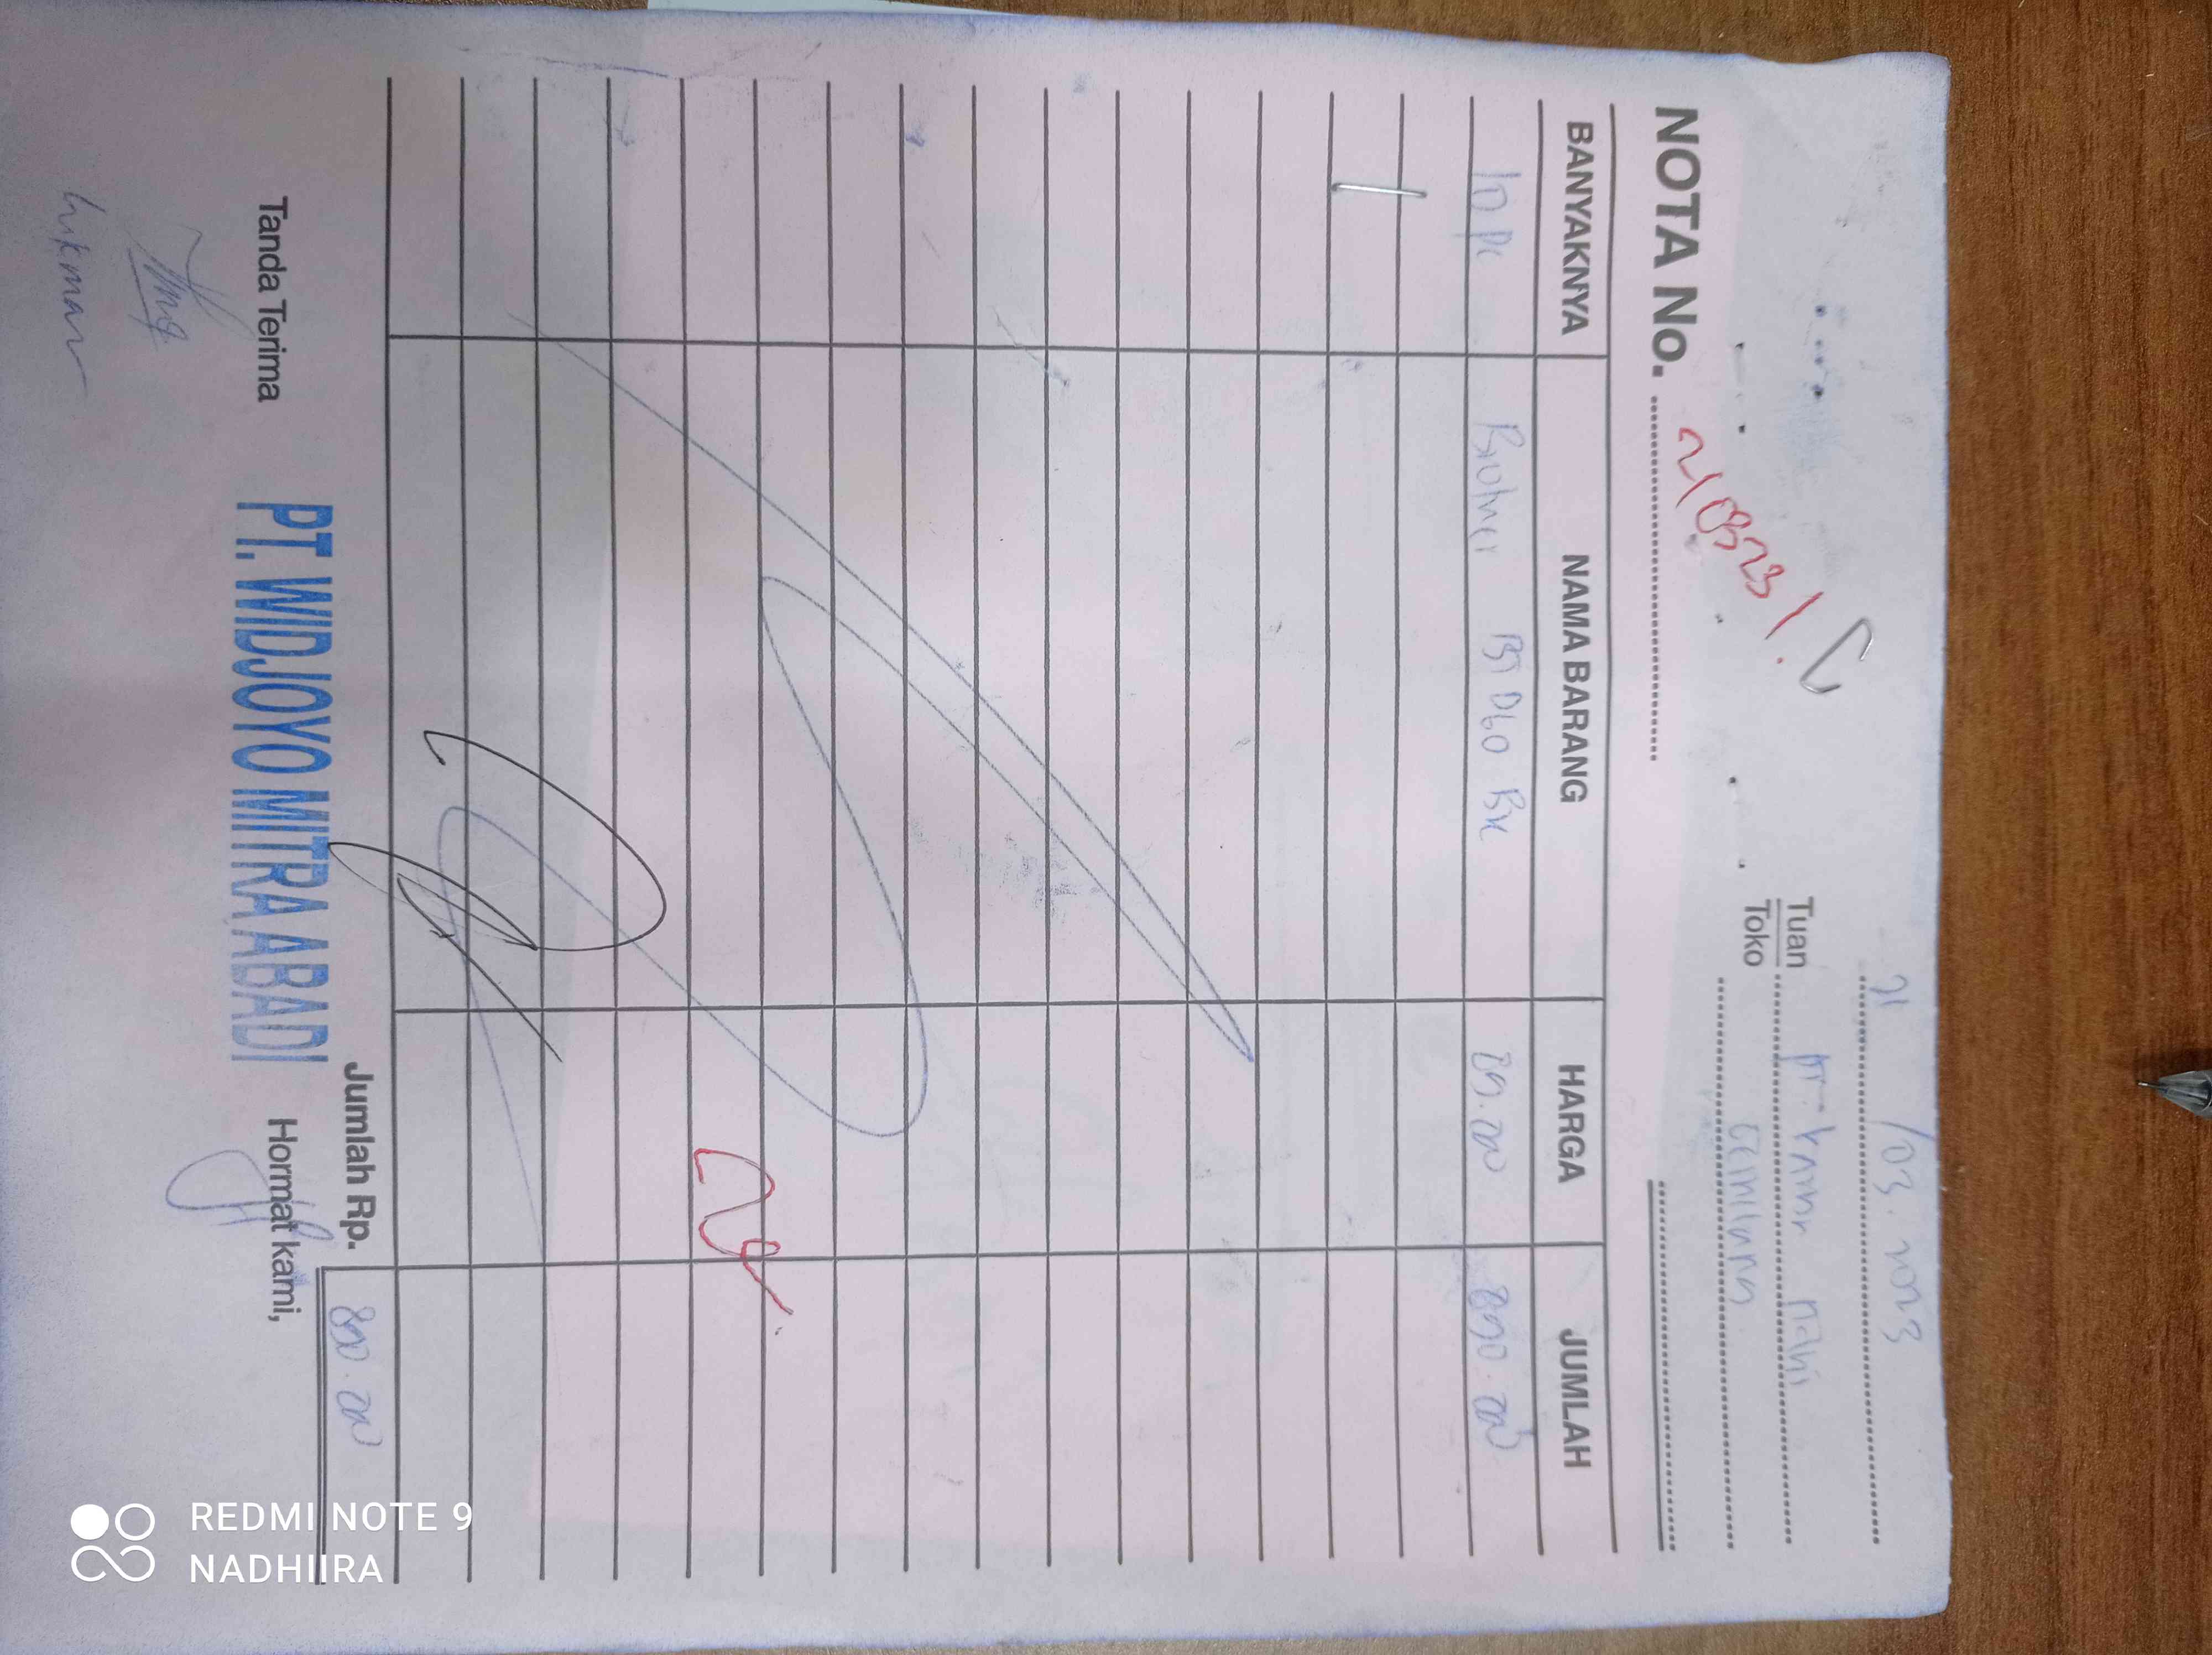 21/03.2023
Tuan PT. Karna
Toko
NOTA No. 210323/
BANYAKNYA NAMA BARANG HARGA JUMLAH
10 pc Brother BTD60 BK 89.000 890.000
Jumlah Rp. 890.000
Tanda Terima Hormat kami,
PT. WIDJOYO MITRA ABADI
Lukman
REDMI NOTE 9
NADHIIRA